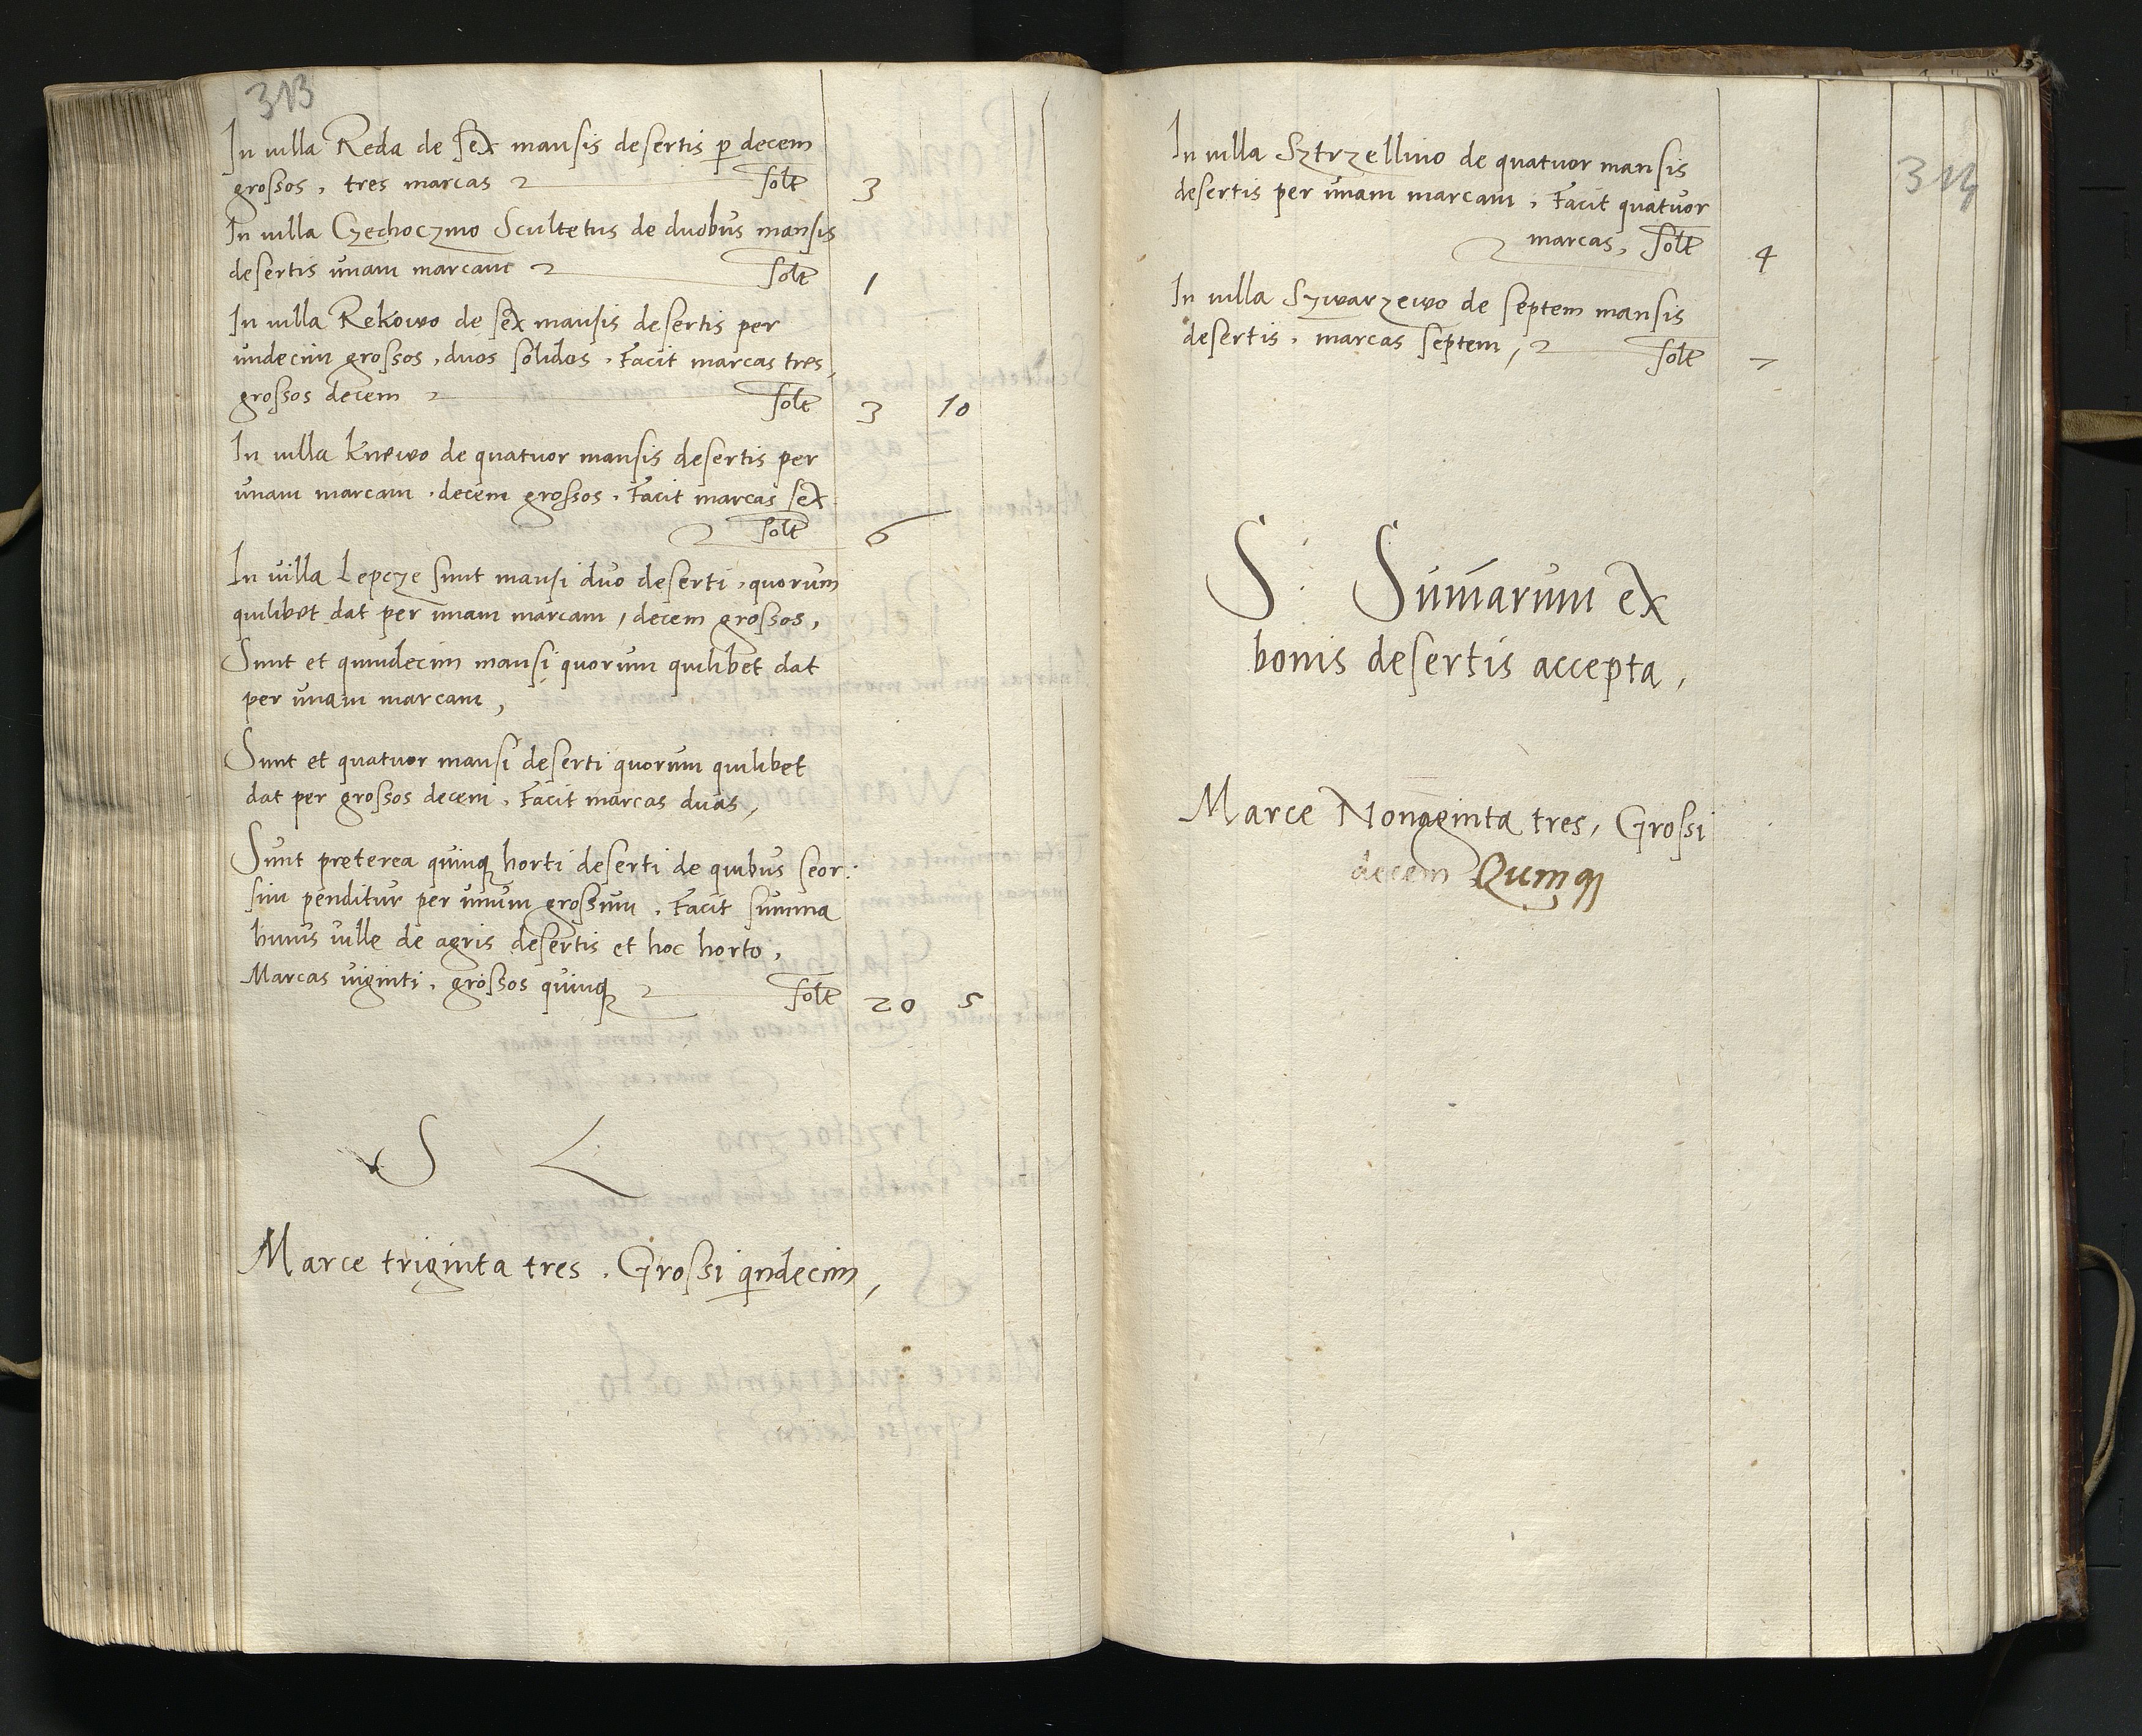 313
In villa Reda de sex mansis desertis p decem
grossos, tres marcas Solt 3
In villa Czechoczyno Scultetus de duobus mansis
desertis unam marcam Solt 1
In villa Rekowo de sex mansis desertis per
undecim grossos, duos solidos. Facit marcas tres,
grossos decem Solt 3 10
In villa Knewo de quatuor mansis desertis per
unam marcam, decem grossos. Facit marcas sex
Solt 6
In villa Lepcze sunt mansi duo deserti, quorum
quilibet dat per unam marcam, decem grossos,
Sunt et quindecim mansi quorum quilibet dat
per unam marcam,
Sunt et quatuor mansi deserti quorum quilibet
dat per grossos decem. Facit marcas duas,
Sunt preterea quinq horti deserti de quibus seor:
sim penditur per unum grossum. Facit summa
huius ville de agris desertis et hoc horto,
Marcas viginti, grossos quinq Solt 20 5
S L
Marce triginta tres. Grossi qindecim,
314
In villa Sztrzellino de quatuor mansis
desertis per unam marcam. Facit quatuor
marcas, Solt 4
In villa Szwarzewo de septem mansis
desertis, marcas septem, Solt 7
S: Sumarum ex
bonis desertis accepta,
Marce Nonaginta tres, Grossi
decem Quinq